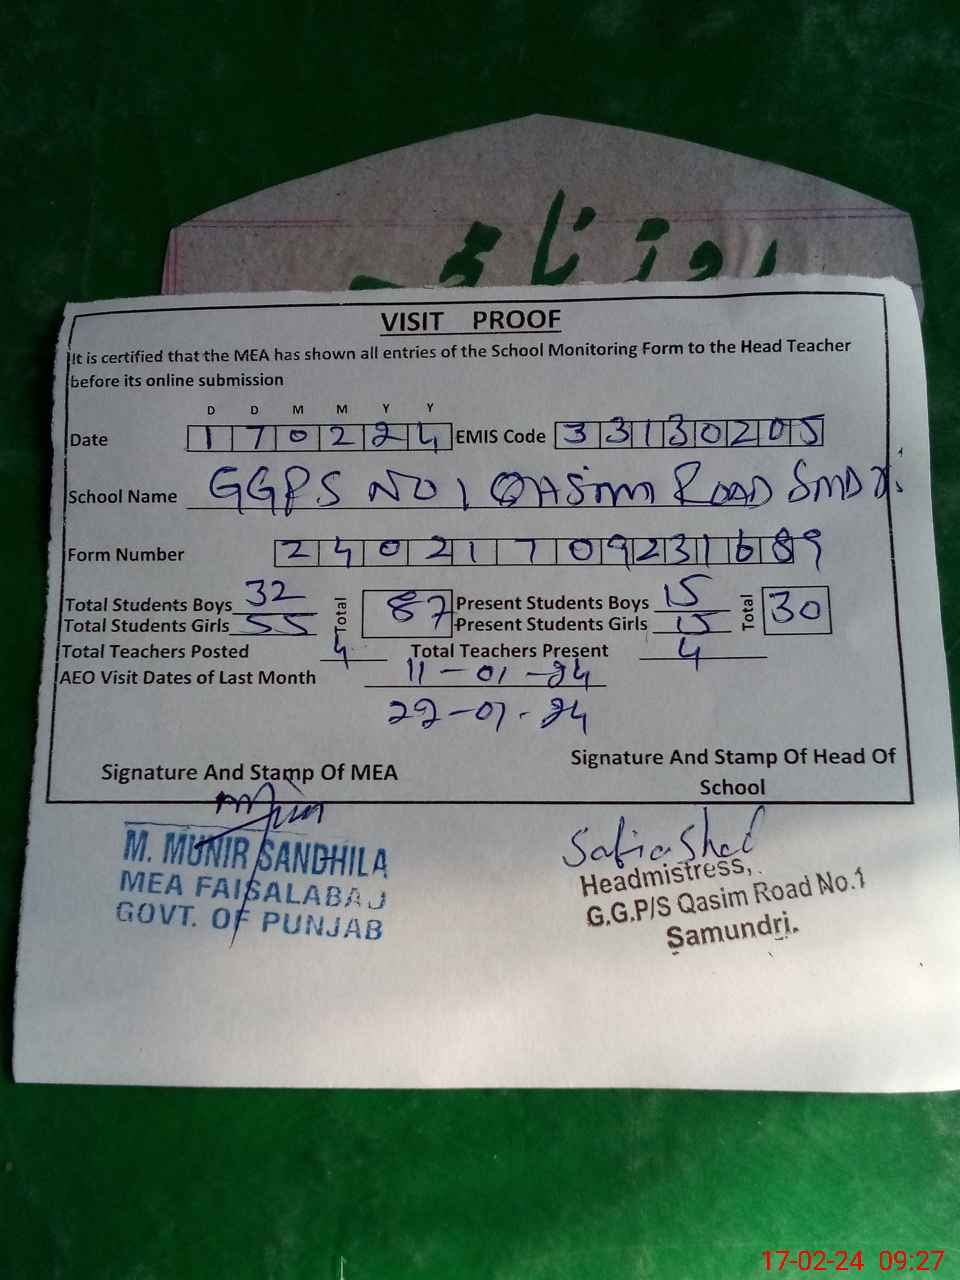 روزنامچہ
VISIT PROOF
It is certified that the MEA has shown all entries of the School Monitoring Form to the Head Teacher
before its online submission
D D M M Y Y
Date 170224 EMIS Code 33130205
School Name GGPS NO 1 QASIM ROAD SMDRi
Form Number 24021709231689
Total Students Boys 32 Total 87 Present Students Boys 15 Total 30
Total Students Girls 55 Present Students Girls 15
Total Teachers Posted 4 Total Teachers Present 4
AEO Visit Dates of Last Month 11-01-24
22-01-24
Signature And Stamp Of MEA
Signature And Stamp Of Head Of
School
M. MUNIR SANDHILA
MEA FAISALABAD
GOVT. OF PUNJAB
Safia
Headmistress,
G.G.P/S Qasim Road No.1
Samundri.
17-02-24 09:27